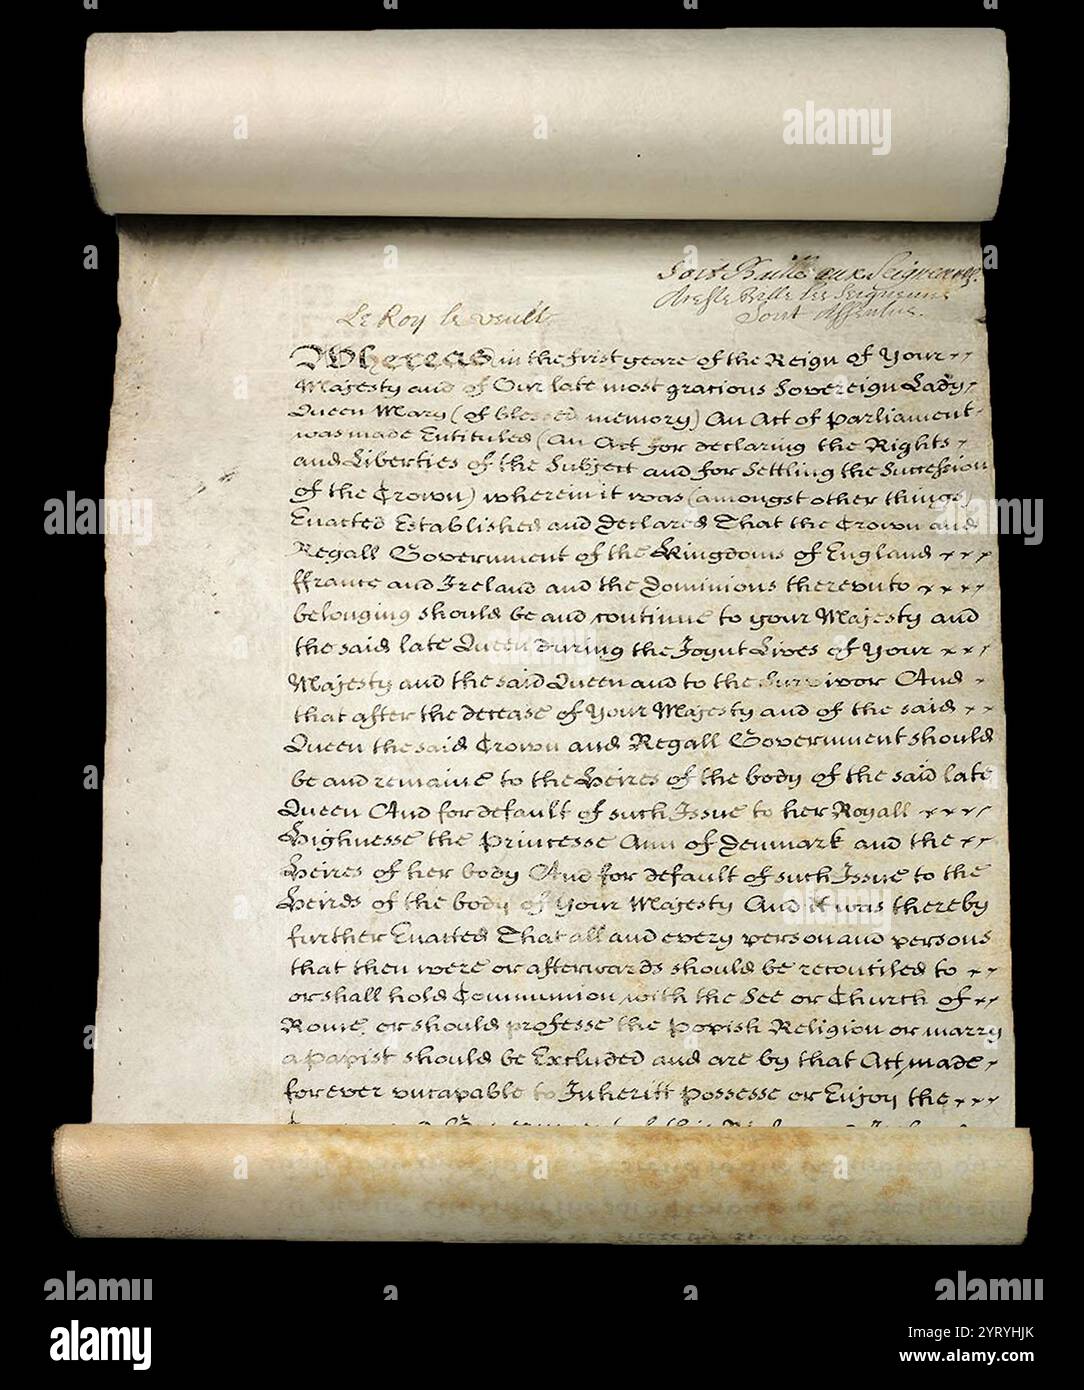 Soit Baille aux Seigneurs.
A cest Bille les Seigneurs
Sont Assentus.
Le Roy le veult.
Whereas in the first yeare of the Reign of Your
Majesty and of Our late most gracious Sovereign Lady
Queen Mary (of blessed memory) An Act of Parliament
was made Entituled (An Act for declaring the Rights
and Liberties of the Subject and for Settling the Succession
of the Crown) wherein it was (amongst other things)
Enacted Established and Declared That the Crown and
Regall Government of the Kingdoms of England
ffrance and Ireland and the Dominions thereunto
belonging should be and continue to your Majesty and
the said late Queen during the Joynt Lives of Your
Majesty and the said Queen and to the Survivor And
that after the decease of Your Majesty and of the said
Queen the said Crown and Regall Government should
be and remaine to the Heires of the body of the said late
Queen And for default of such Issue to her Royall
Highnesse the Princesse Ann of Denmark and the
Heires of her body And for default of such Issue to the
Heirds of the body of Your Majesty And it was thereby
further Enacted That all and every person and persons
that then were or afterwards should be reconciled to
or shall hold Communion with the See or Church of
Rome or should professe the Popish Religion or marry
a Papist should be Excluded and are by that Act made
forever uncapable to Inheritt Possesse or Enjoy the
alamy
Image ID: 2YRYHJK
www.alamy.com